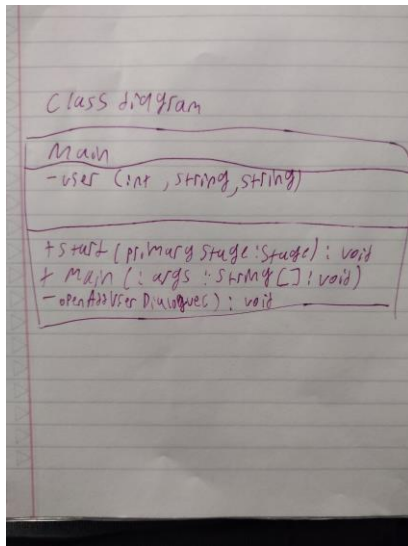 Class diagram
Main
- user (int , string, string)
+ start (primary Stage : Stage) : void
+ main (: args : string [] : void)
- openAddUser Dialogue() : void